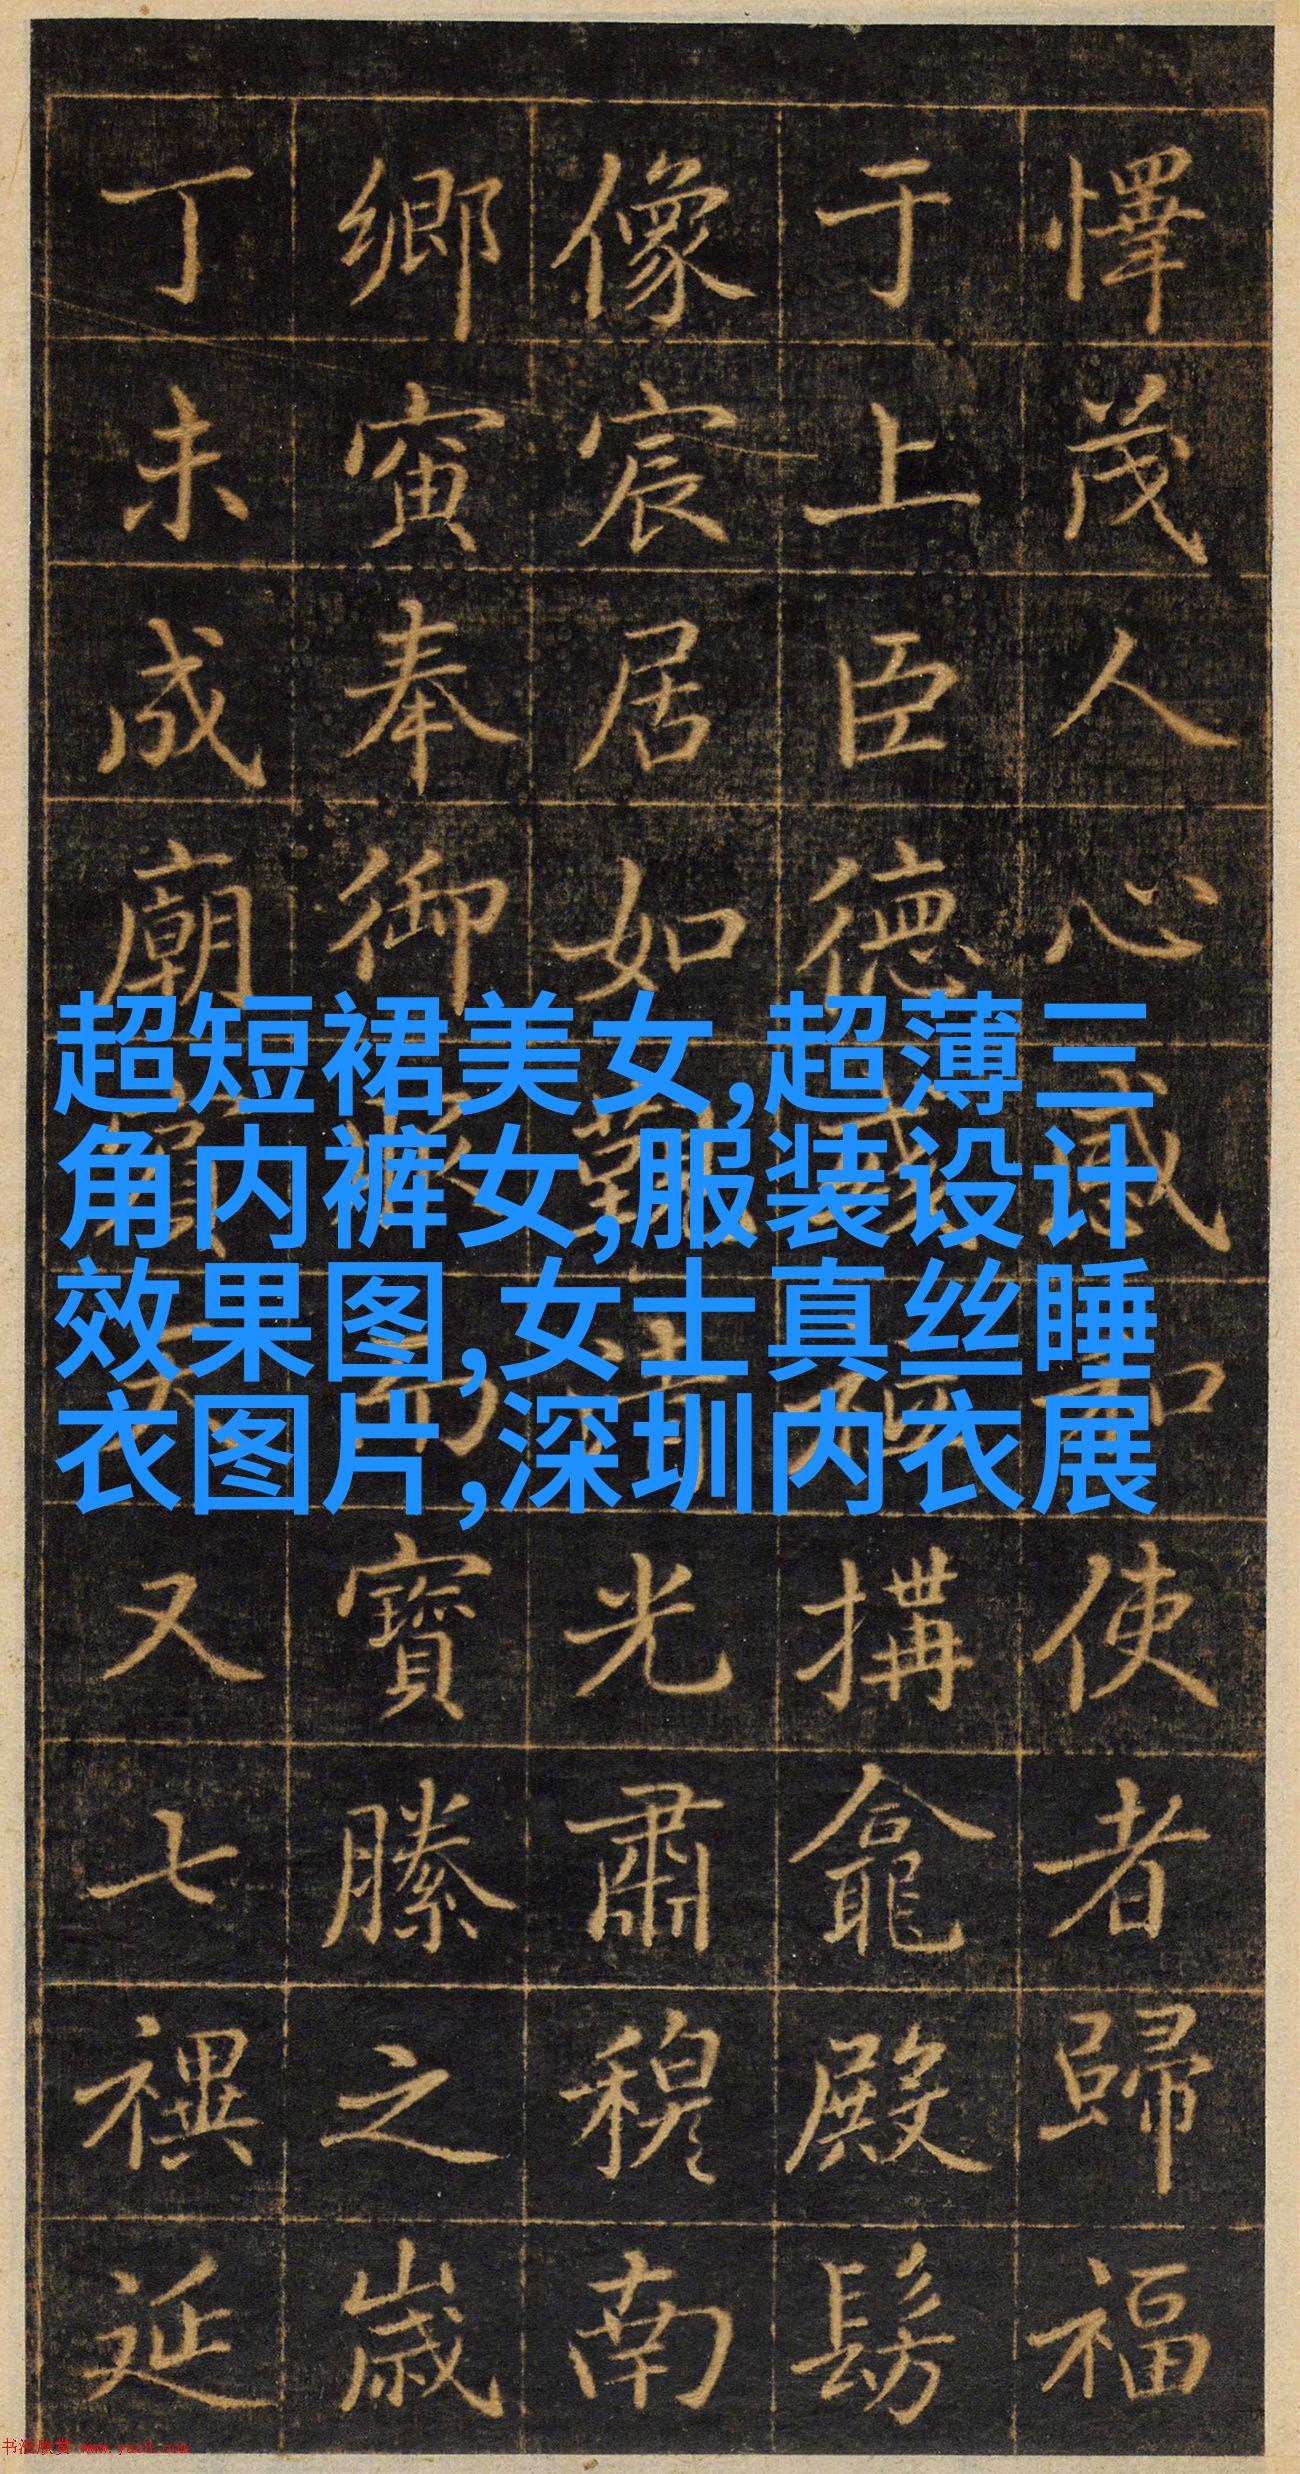 懌茂人心感使者歸福
于上臣德搆龕殿髣
像宸居如光肅穆南
鄉寅奉御寶縢之歲
丁未成廟又七禩延
超短裙美女,超薄三
角内裤女,服装设计
效果图,女士真丝睡
衣图片,深圳内衣展
书法欣赏 www.yac8.com